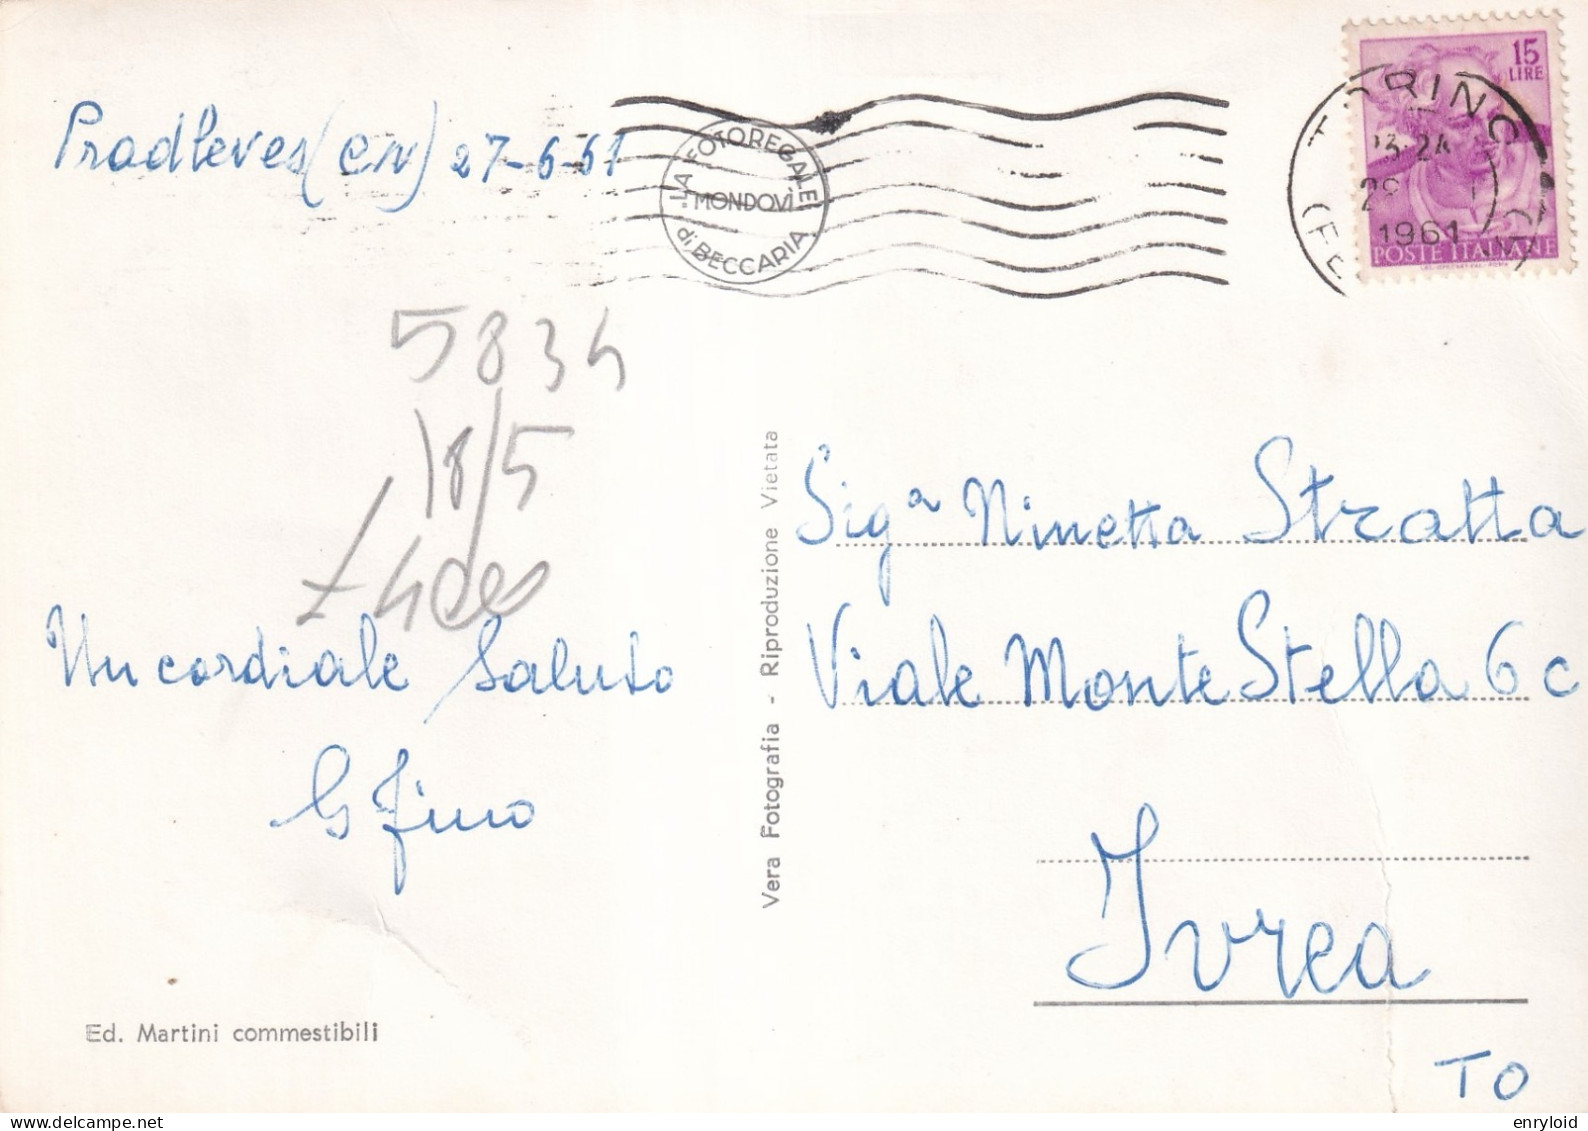 Pradleves (CN) 27-6-61
LA FOTOREGALE
MONDOVÌ
di BECCARIA
15
LIRE
TORINO
23-24
1961
POSTE ITALIANE
5834
18/5
Un cordiale saluto
G Fino
Ed. Martini commestibili
Vera Fotografia - Riproduzione Vietata
Sigª Ninetta Stratta
Viale Monte Stella 6 c
Ivrea
TO
delcampe.net
enryloid